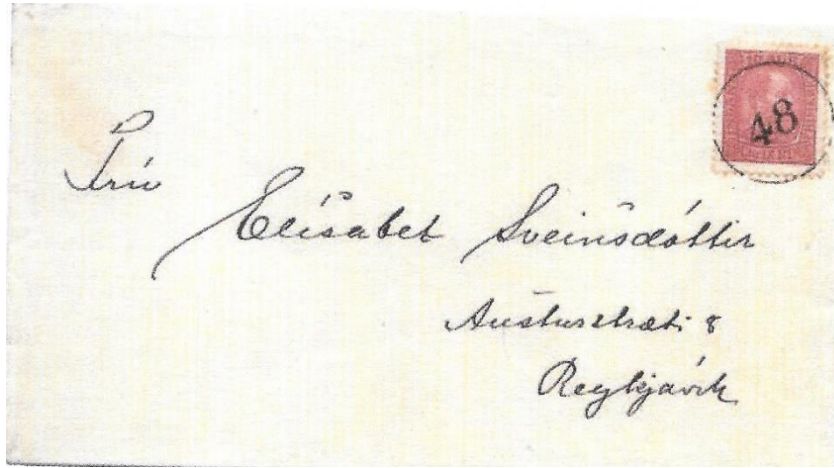 48
Frú
Elísabet Sveinsdóttir
Austurstræti 8
Reykjavík